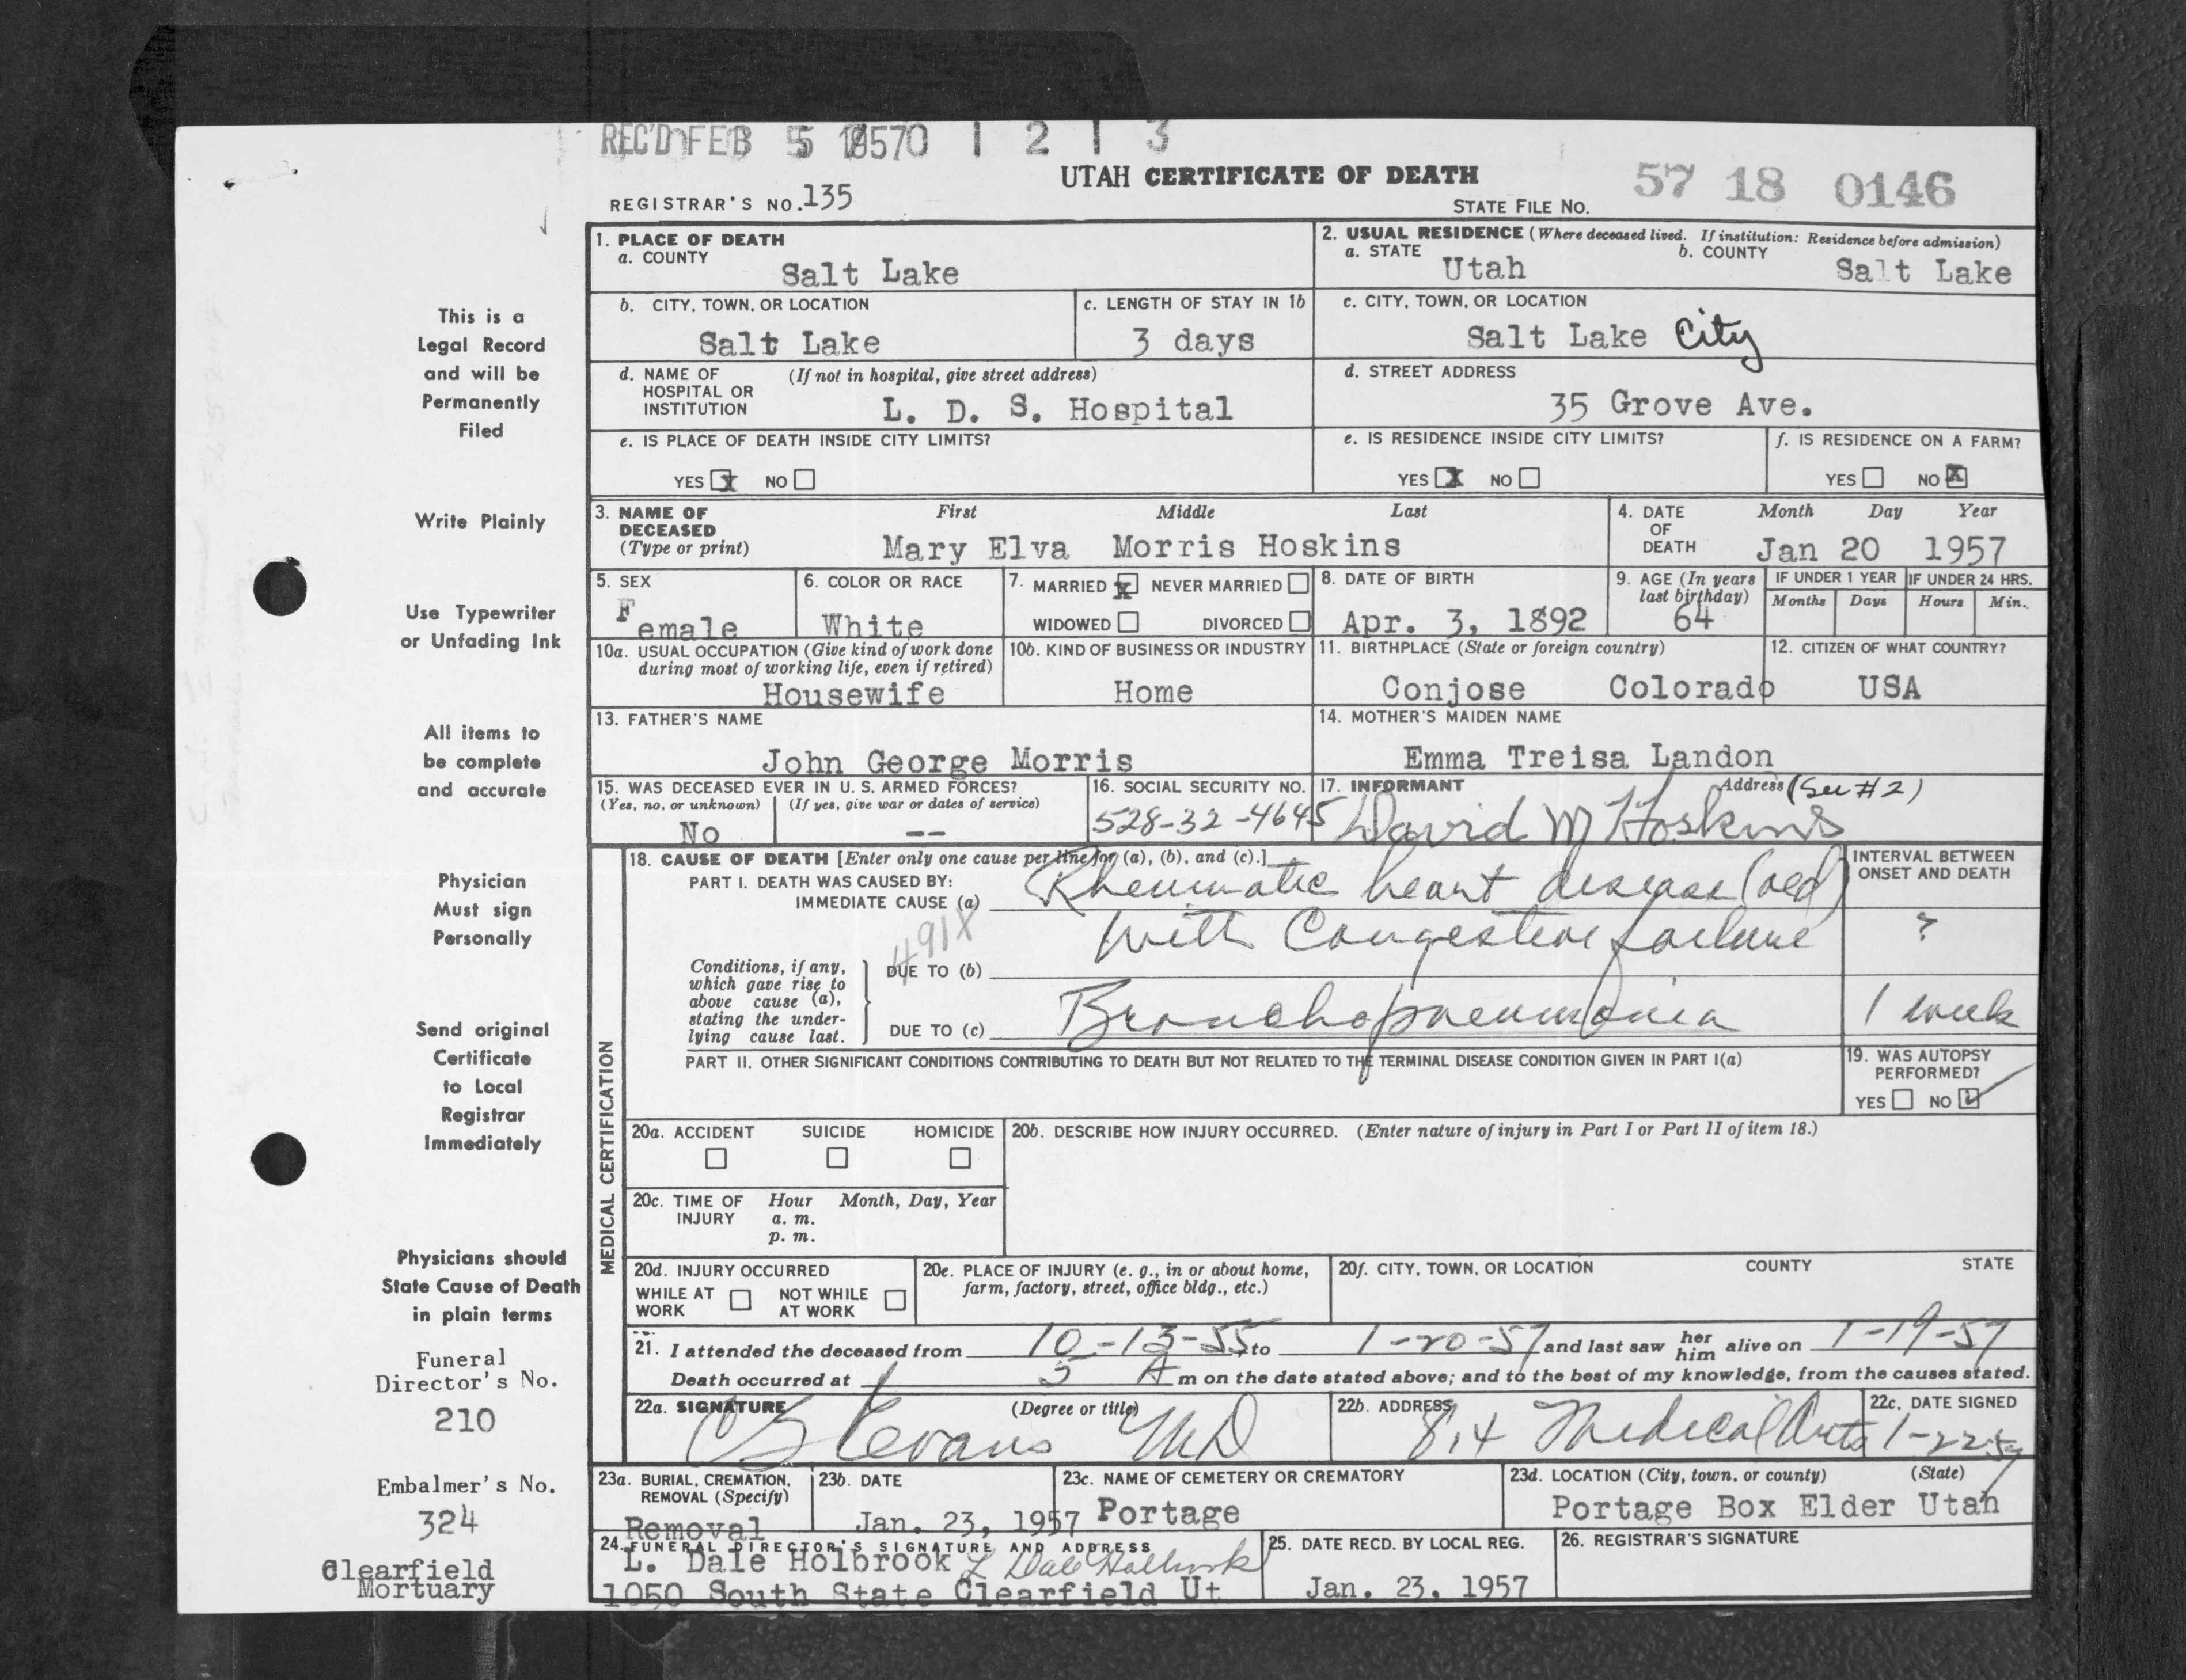 REC'D FEB 5 1957 0 1 2 1 3
UTAH CERTIFICATE OF DEATH
57 18 0146
REGISTRAR'S NO. 135
STATE FILE NO.
1. PLACE OF DEATH
a. COUNTY
Salt Lake
2. USUAL RESIDENCE (Where deceased lived. If institution: Residence before admission)
a. STATE
Utah
b. COUNTY
Salt Lake
b. CITY, TOWN, OR LOCATION
Salt Lake
c. LENGTH OF STAY IN 1b
3 days
c. CITY, TOWN, OR LOCATION
Salt Lake City
d. NAME OF HOSPITAL OR INSTITUTION
(If not in hospital, give street address)
L. D. S. Hospital
d. STREET ADDRESS
35 Grove Ave.
e. IS PLACE OF DEATH INSIDE CITY LIMITS?
YES X NO
e. IS RESIDENCE INSIDE CITY LIMITS?
YES X NO
f. IS RESIDENCE ON A FARM?
YES NO X
3. NAME OF DECEASED
(Type or print)
First Middle Last
Mary Elva Morris Hoskins
4. DATE OF DEATH
Month Day Year
Jan 20 1957
5. SEX
Female
6. COLOR OR RACE
White
7. MARRIED X NEVER MARRIED
WIDOWED DIVORCED
8. DATE OF BIRTH
Apr. 3, 1892
9. AGE (In years last birthday)
64
IF UNDER 1 YEAR
Months Days
IF UNDER 24 HRS.
Hours Min.
10a. USUAL OCCUPATION (Give kind of work done during most of working life, even if retired)
Housewife
10b. KIND OF BUSINESS OR INDUSTRY
Home
11. BIRTHPLACE (State or foreign country)
Conjose Colorado
12. CITIZEN OF WHAT COUNTRY?
USA
13. FATHER'S NAME
John George Morris
14. MOTHER'S MAIDEN NAME
Emma Treisa Landon
15. WAS DECEASED EVER IN U. S. ARMED FORCES?
(Yes, no, or unknown) (If yes, give war or dates of service)
No --
16. SOCIAL SECURITY NO.
528-32-4645
17. INFORMANT Address (See #2)
David M Hoskins
MEDICAL CERTIFICATION
18. CAUSE OF DEATH [Enter only one cause per line for (a), (b), and (c).]
PART I. DEATH WAS CAUSED BY:
IMMEDIATE CAUSE (a) Rheumatic heart disease (old)
with Congestive failure
491X
Conditions, if any, which gave rise to above cause (a), stating the underlying cause last.
DUE TO (b)
DUE TO (c) Bronchopneumonia
INTERVAL BETWEEN ONSET AND DEATH
?
1 week
PART II. OTHER SIGNIFICANT CONDITIONS CONTRIBUTING TO DEATH BUT NOT RELATED TO THE TERMINAL DISEASE CONDITION GIVEN IN PART I(a)
19. WAS AUTOPSY PERFORMED?
YES NO ✓
20a. ACCIDENT SUICIDE HOMICIDE
20b. DESCRIBE HOW INJURY OCCURRED. (Enter nature of injury in Part I or Part II of item 18.)
20c. TIME OF INJURY
Hour Month, Day, Year
a. m.
p. m.
20d. INJURY OCCURRED
WHILE AT WORK NOT WHILE AT WORK
20e. PLACE OF INJURY (e. g., in or about home, farm, factory, street, office bldg., etc.)
20f. CITY, TOWN, OR LOCATION COUNTY STATE
21. I attended the deceased from 10-13-55, to 1-20-57 and last saw her him alive on 1-19-57
Death occurred at 5 A m on the date stated above; and to the best of my knowledge, from the causes stated.
22a. SIGNATURE (Degree or title)
Evans MD
22b. ADDRESS
Medical Arts
22c. DATE SIGNED
1-22-57
23a. BURIAL, CREMATION, REMOVAL (Specify)
Removal
23b. DATE
Jan. 23, 1957
23c. NAME OF CEMETERY OR CREMATORY
Portage
23d. LOCATION (City, town, or county) (State)
Portage Box Elder Utah
24. FUNERAL DIRECTOR'S SIGNATURE AND ADDRESS
L. Dale Holbrook L Dale Holbrook
1050 South State Clearfield Ut
25. DATE RECD. BY LOCAL REG.
Jan. 23, 1957
26. REGISTRAR'S SIGNATURE
This is a
Legal Record
and will be
Permanently
Filed
Write Plainly
Use Typewriter
or Unfading Ink
All items to
be complete
and accurate
Physician
Must sign
Personally
Send original
Certificate
to Local
Registrar
Immediately
Physicians should
State Cause of Death
in plain terms
Funeral
Director's No.
210
Embalmer's No.
324
Clearfield
Mortuary